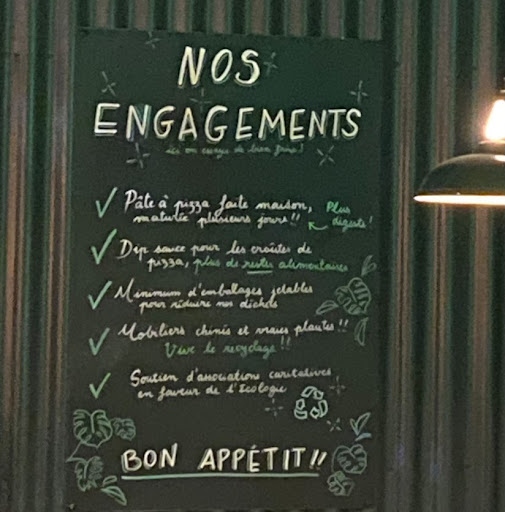 NOS
ENGAGEMENTS
ici on essaye de bien faire !
Pâte à pizza faite maison,
maturée plusieurs jours !!
Plus
digeste !
Dip sauce pour les croûtes de
pizza, plus de restes alimentaires
Minimum d'emballages jetables
pour réduire nos déchets
Mobiliers chinés et vraies plantes !!
Vive le recyclage !!
Soutien d'associations caritatives
en faveur de l'écologie
BON APPÉTIT !!